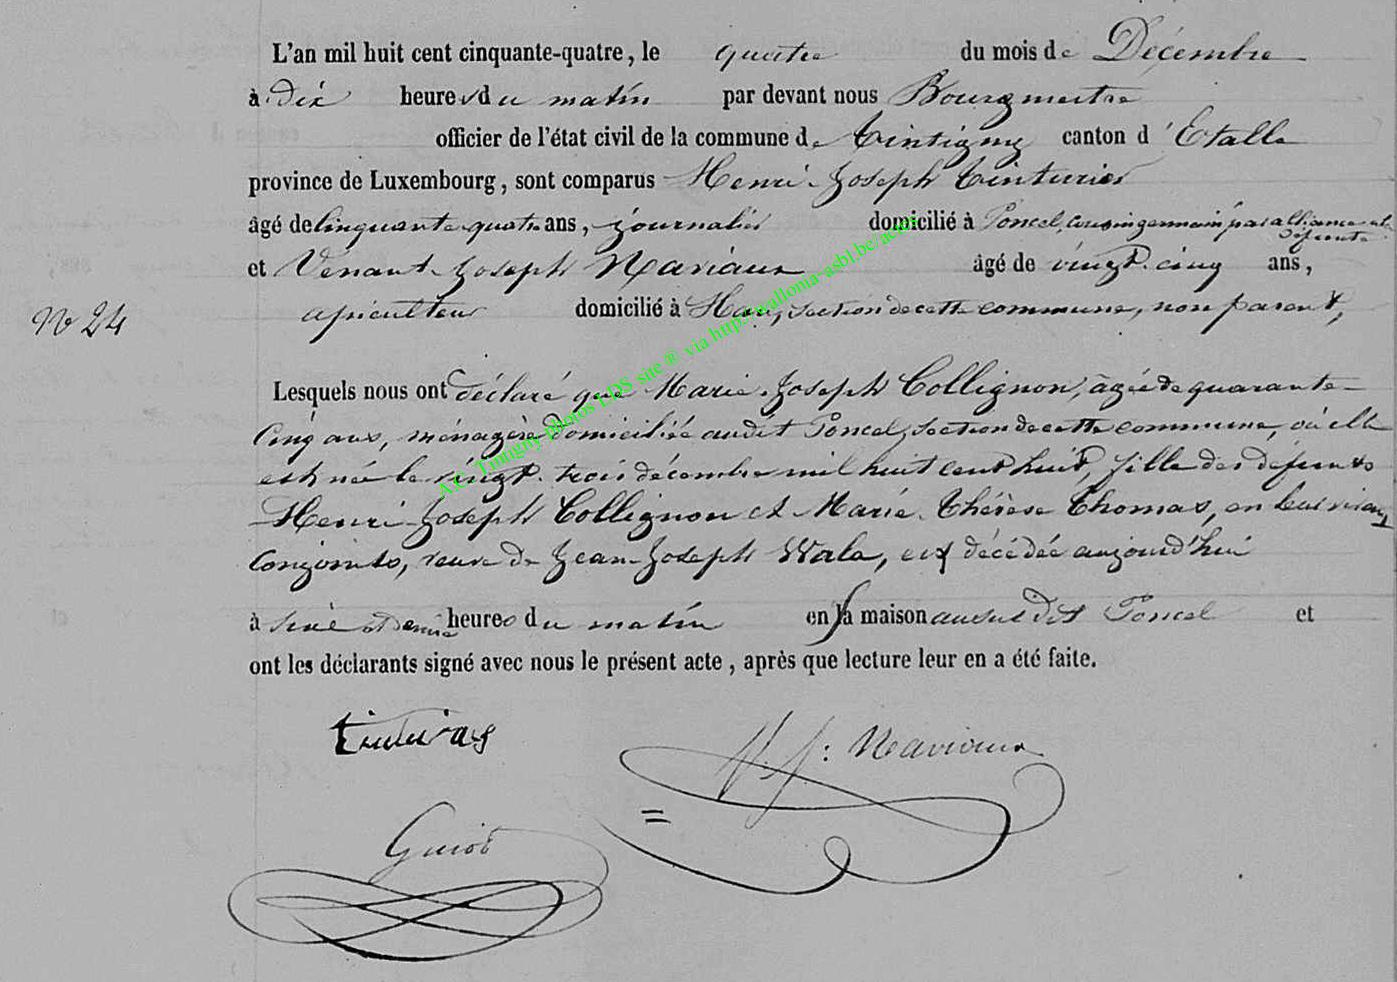 L'an mil huit cent cinquante-quatre, le quatre du mois de Décembre
à dix heures du matin par devant nous Bourgmestre
officier de l'état civil de la commune de Tintigny canton d'Etalle
province de Luxembourg, sont comparus Henri-Joseph Tinturier
âgé de Cinquante-quatre ans, journalier domicilié à Poncel, cousin germain par alliance à la défunte
et Venant-Joseph Naviaux âgé de vingt-cinq ans,
domicilié à Han, section de cette commune, non parent,
N° 24
Lesquels nous ont déclaré que Marie-Joseph Collignon, âgée de quarante-
Cinq ans, ménagère domiciliée audit Poncel, section de cette commune, où elle
est née le vingt-trois décembre mil huit cent huit, fille des défunts
Henri-Joseph Collignon et Marie-Thérèse Thomas, en leur vivant
conjoints, veuve de Jean-Joseph Wala, est décédée aujourd'hui
à et demie heures du matin en sa maison audit Poncel et
ont les déclarants signé avec nous le présent acte, après que lecture leur en a été faite.
V. J. Naviaux
A.C. Tintigny photos LDS site ® via http://wallonia-asbl.be/actes